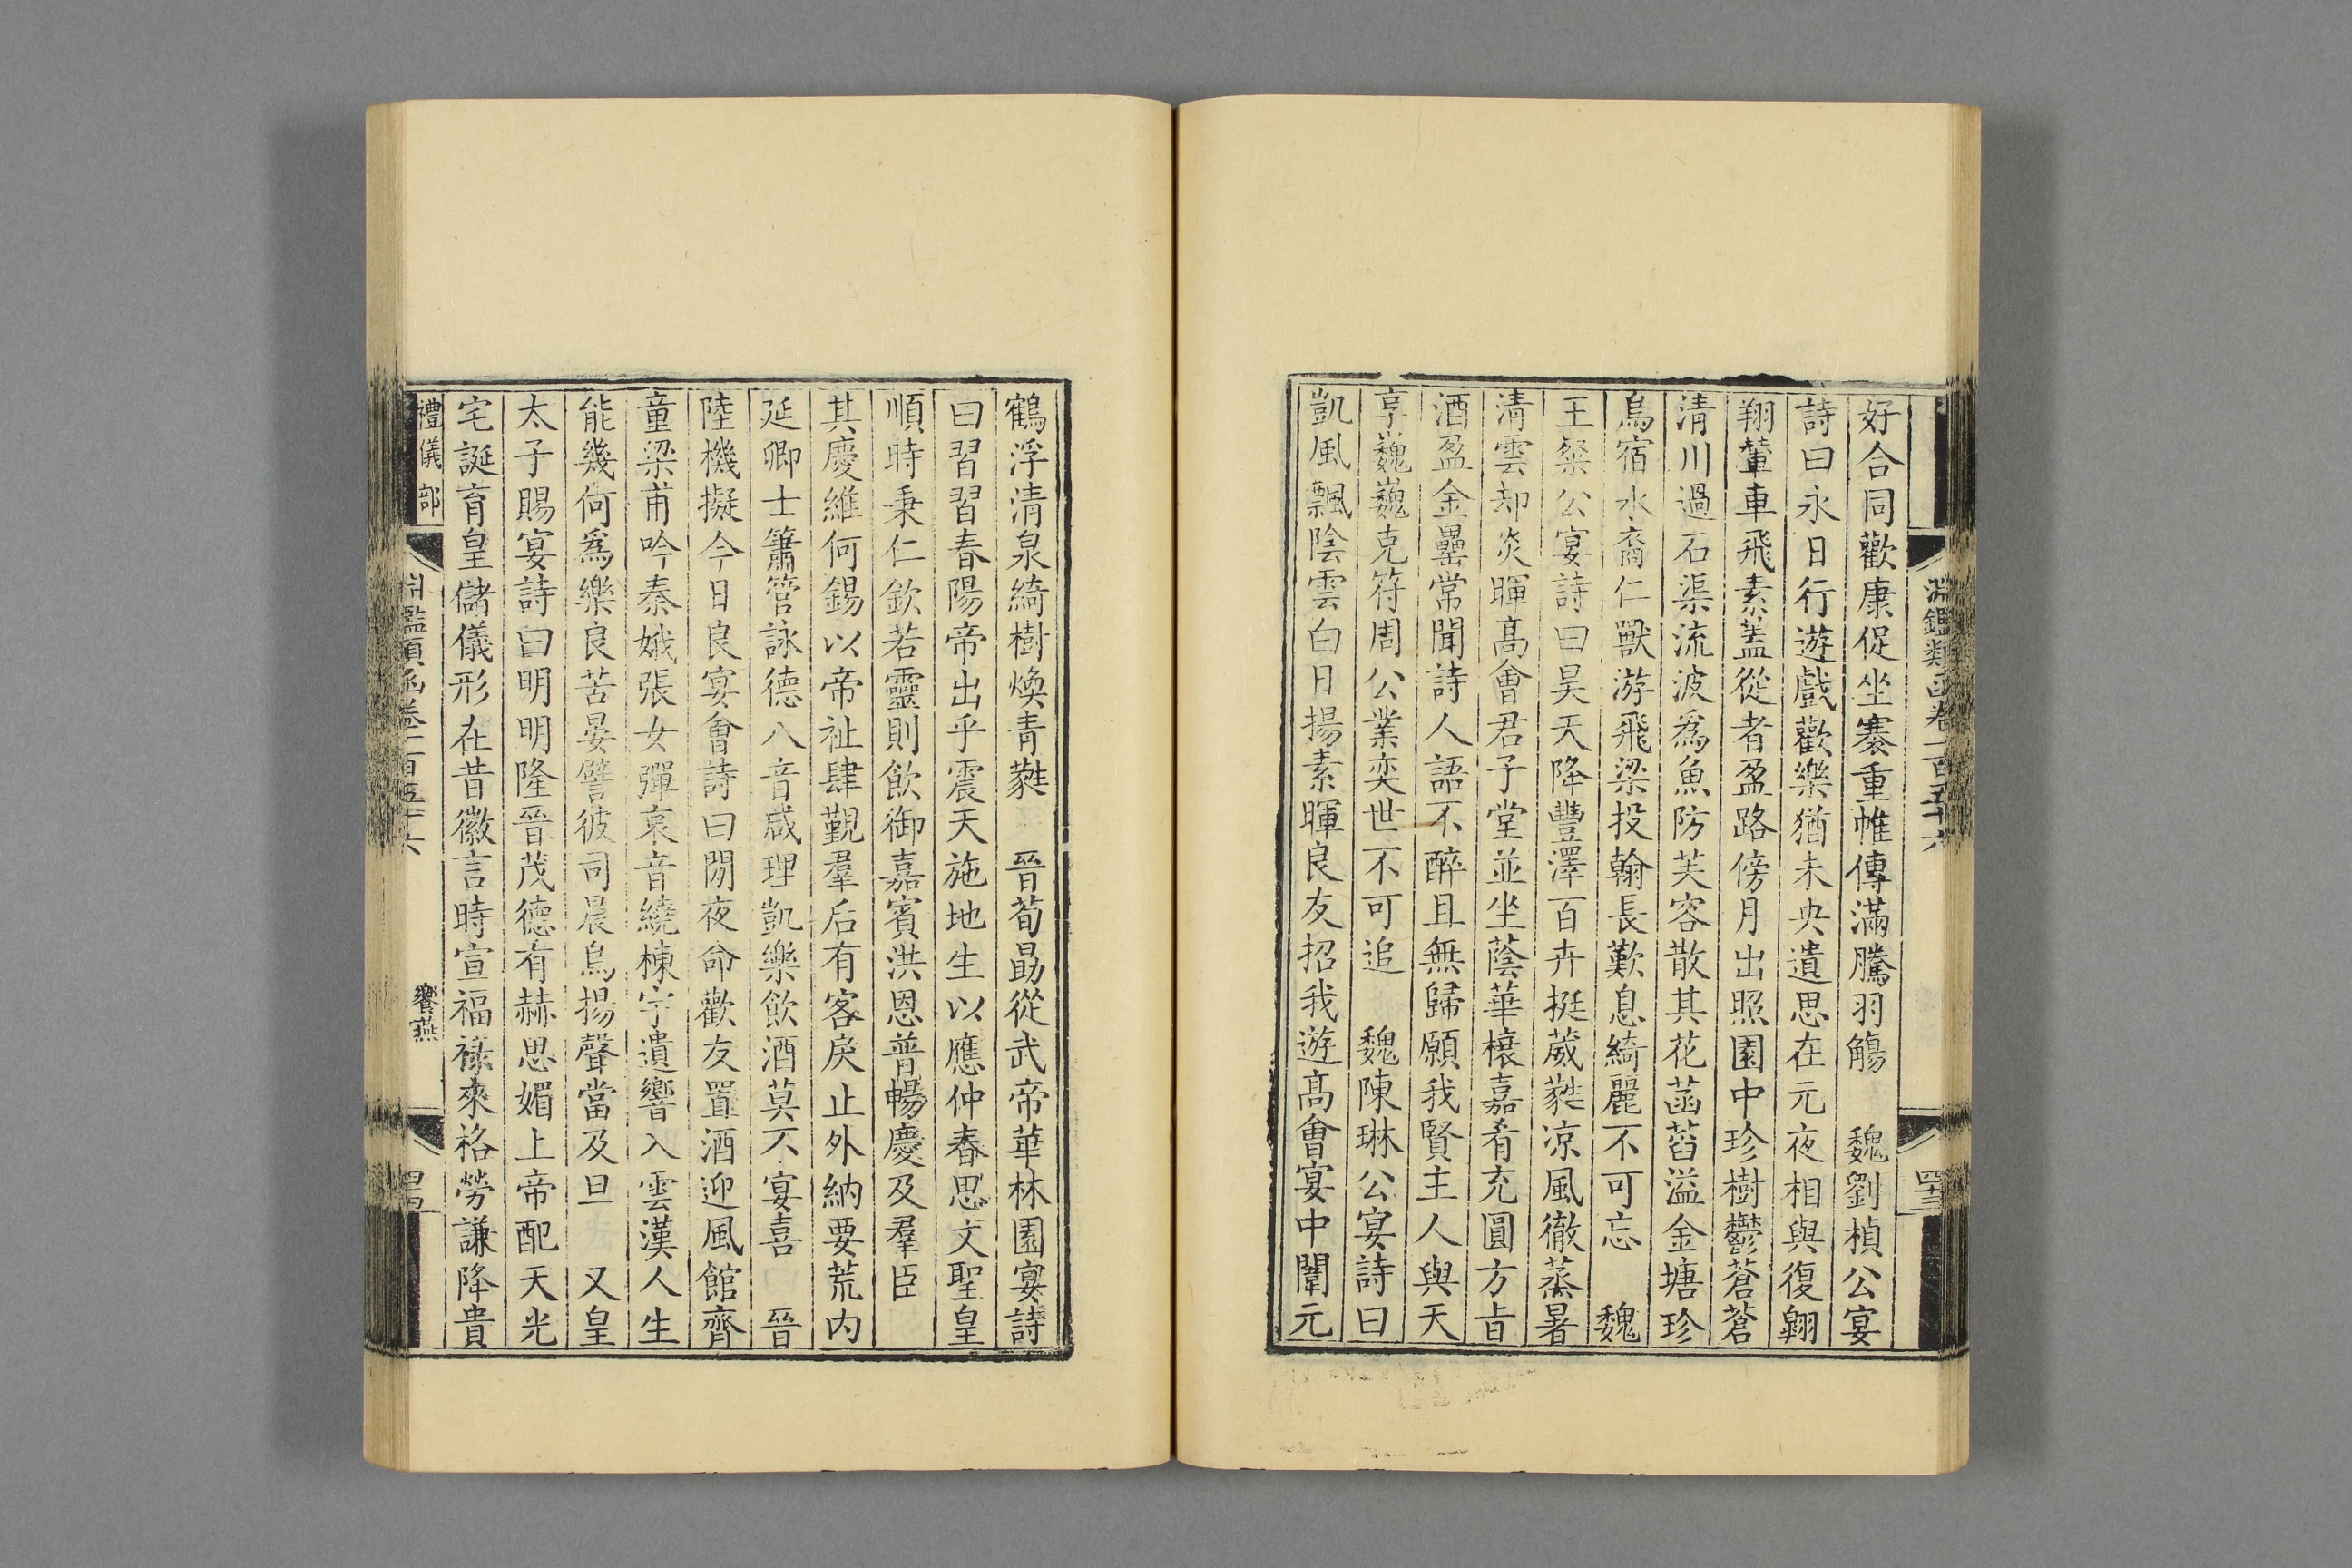 淵鑑類函卷一百五十六
四十三
好合同歡康促坐褰重帷傳滿騰羽觴　魏劉楨公宴
詩曰永日行遊戲歡樂猶未央遺思在元夜相與復翺
翔輦車飛素蓋從者盈路傍月出照園中珍樹鬱蒼蒼
清川過石渠流波爲魚防芙容散其花菡萏溢金塘珍
鳥宿水裔仁獸游飛梁投翰長歎息綺麗不可忘　魏
王粲公宴詩曰昊天降豐澤百卉挺葳蕤凉風徹蒸暑
清雲却炎暉高會君子堂並坐蔭華榱嘉肴充圓方旨
酒盈金罍常聞詩人語不醉且無歸願我賢主人與天
享巍巍克符周公業奕世不可追　魏陳琳公宴詩曰
凱風飄陰雲白日揚素暉良友招我遊高會宴中闈元
鶴浮清泉綺樹煥青蕤　晉荀勗從武帝華林園宴詩
曰習習春陽帝出乎震天施地生以應仲春思文聖皇
順時秉仁欽若靈則飲御嘉賓洪恩普暢慶及羣臣
其慶維何錫以帝祉肆覲羣后有客戾止外納要荒内
延卿士簫管詠德八音咸理凱樂飲酒莫不宴喜　晉
陸機擬今日良宴會詩曰閒夜命歡友置酒迎風館齊
童梁甫吟秦娥張女彈哀音繞棟宇遺響入雲漢人生
能幾何爲樂良苦晏譬彼司晨鳥揚聲當及旦　又皇
太子賜宴詩曰明明隆晉茂德有赫思媚上帝配天光
宅誕育皇儲儀形在昔徽言時宣福祿來格勞謙降貴
禮儀部
淵鑑類函卷一百五十六
饗燕